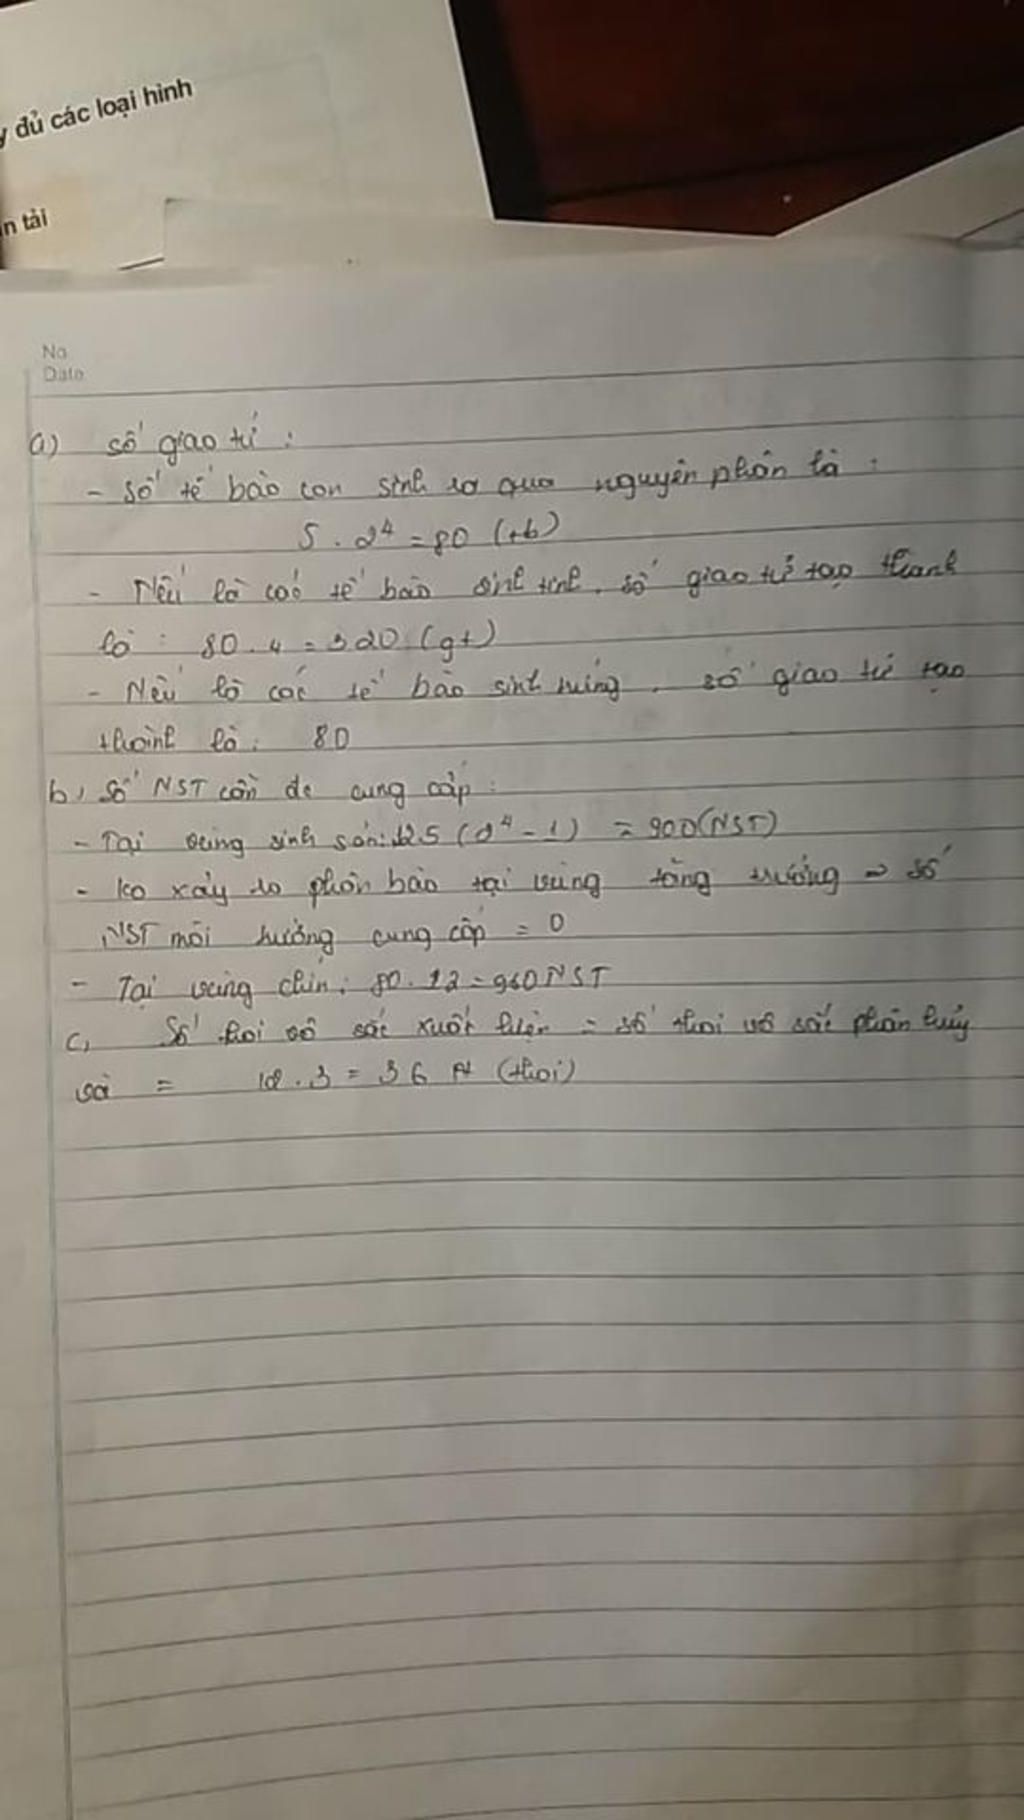 y đủ các loại hình
n tải
No
Date
a) số giao tử :
- Số tế bào con sinh ra qua nguyên phân là :
5 . 2⁴ = 80 (tb)
- Nếu là các tế bào sinh tinh, số giao tử tạo thành
là : 80 . 4 = 320 (gt)
- Nếu là các tế bào sinh trứng, số giao tử tạo
thành là : 80
b, Số NST cần cung cấp :
- Tại vùng sinh sản: 12.5 (2⁴ - 1) = 900 (NST)
- Ko xảy ra phân bào tại vùng tăng trưởng => số
NST môi trường cung cấp = 0
- Tại vùng chín : 80 . 12 = 960 NST
c, Số thoi vô sắc xuất hiện = số thoi vô sắc phân hủy
và = 12 . 3 = 36 (thoi)